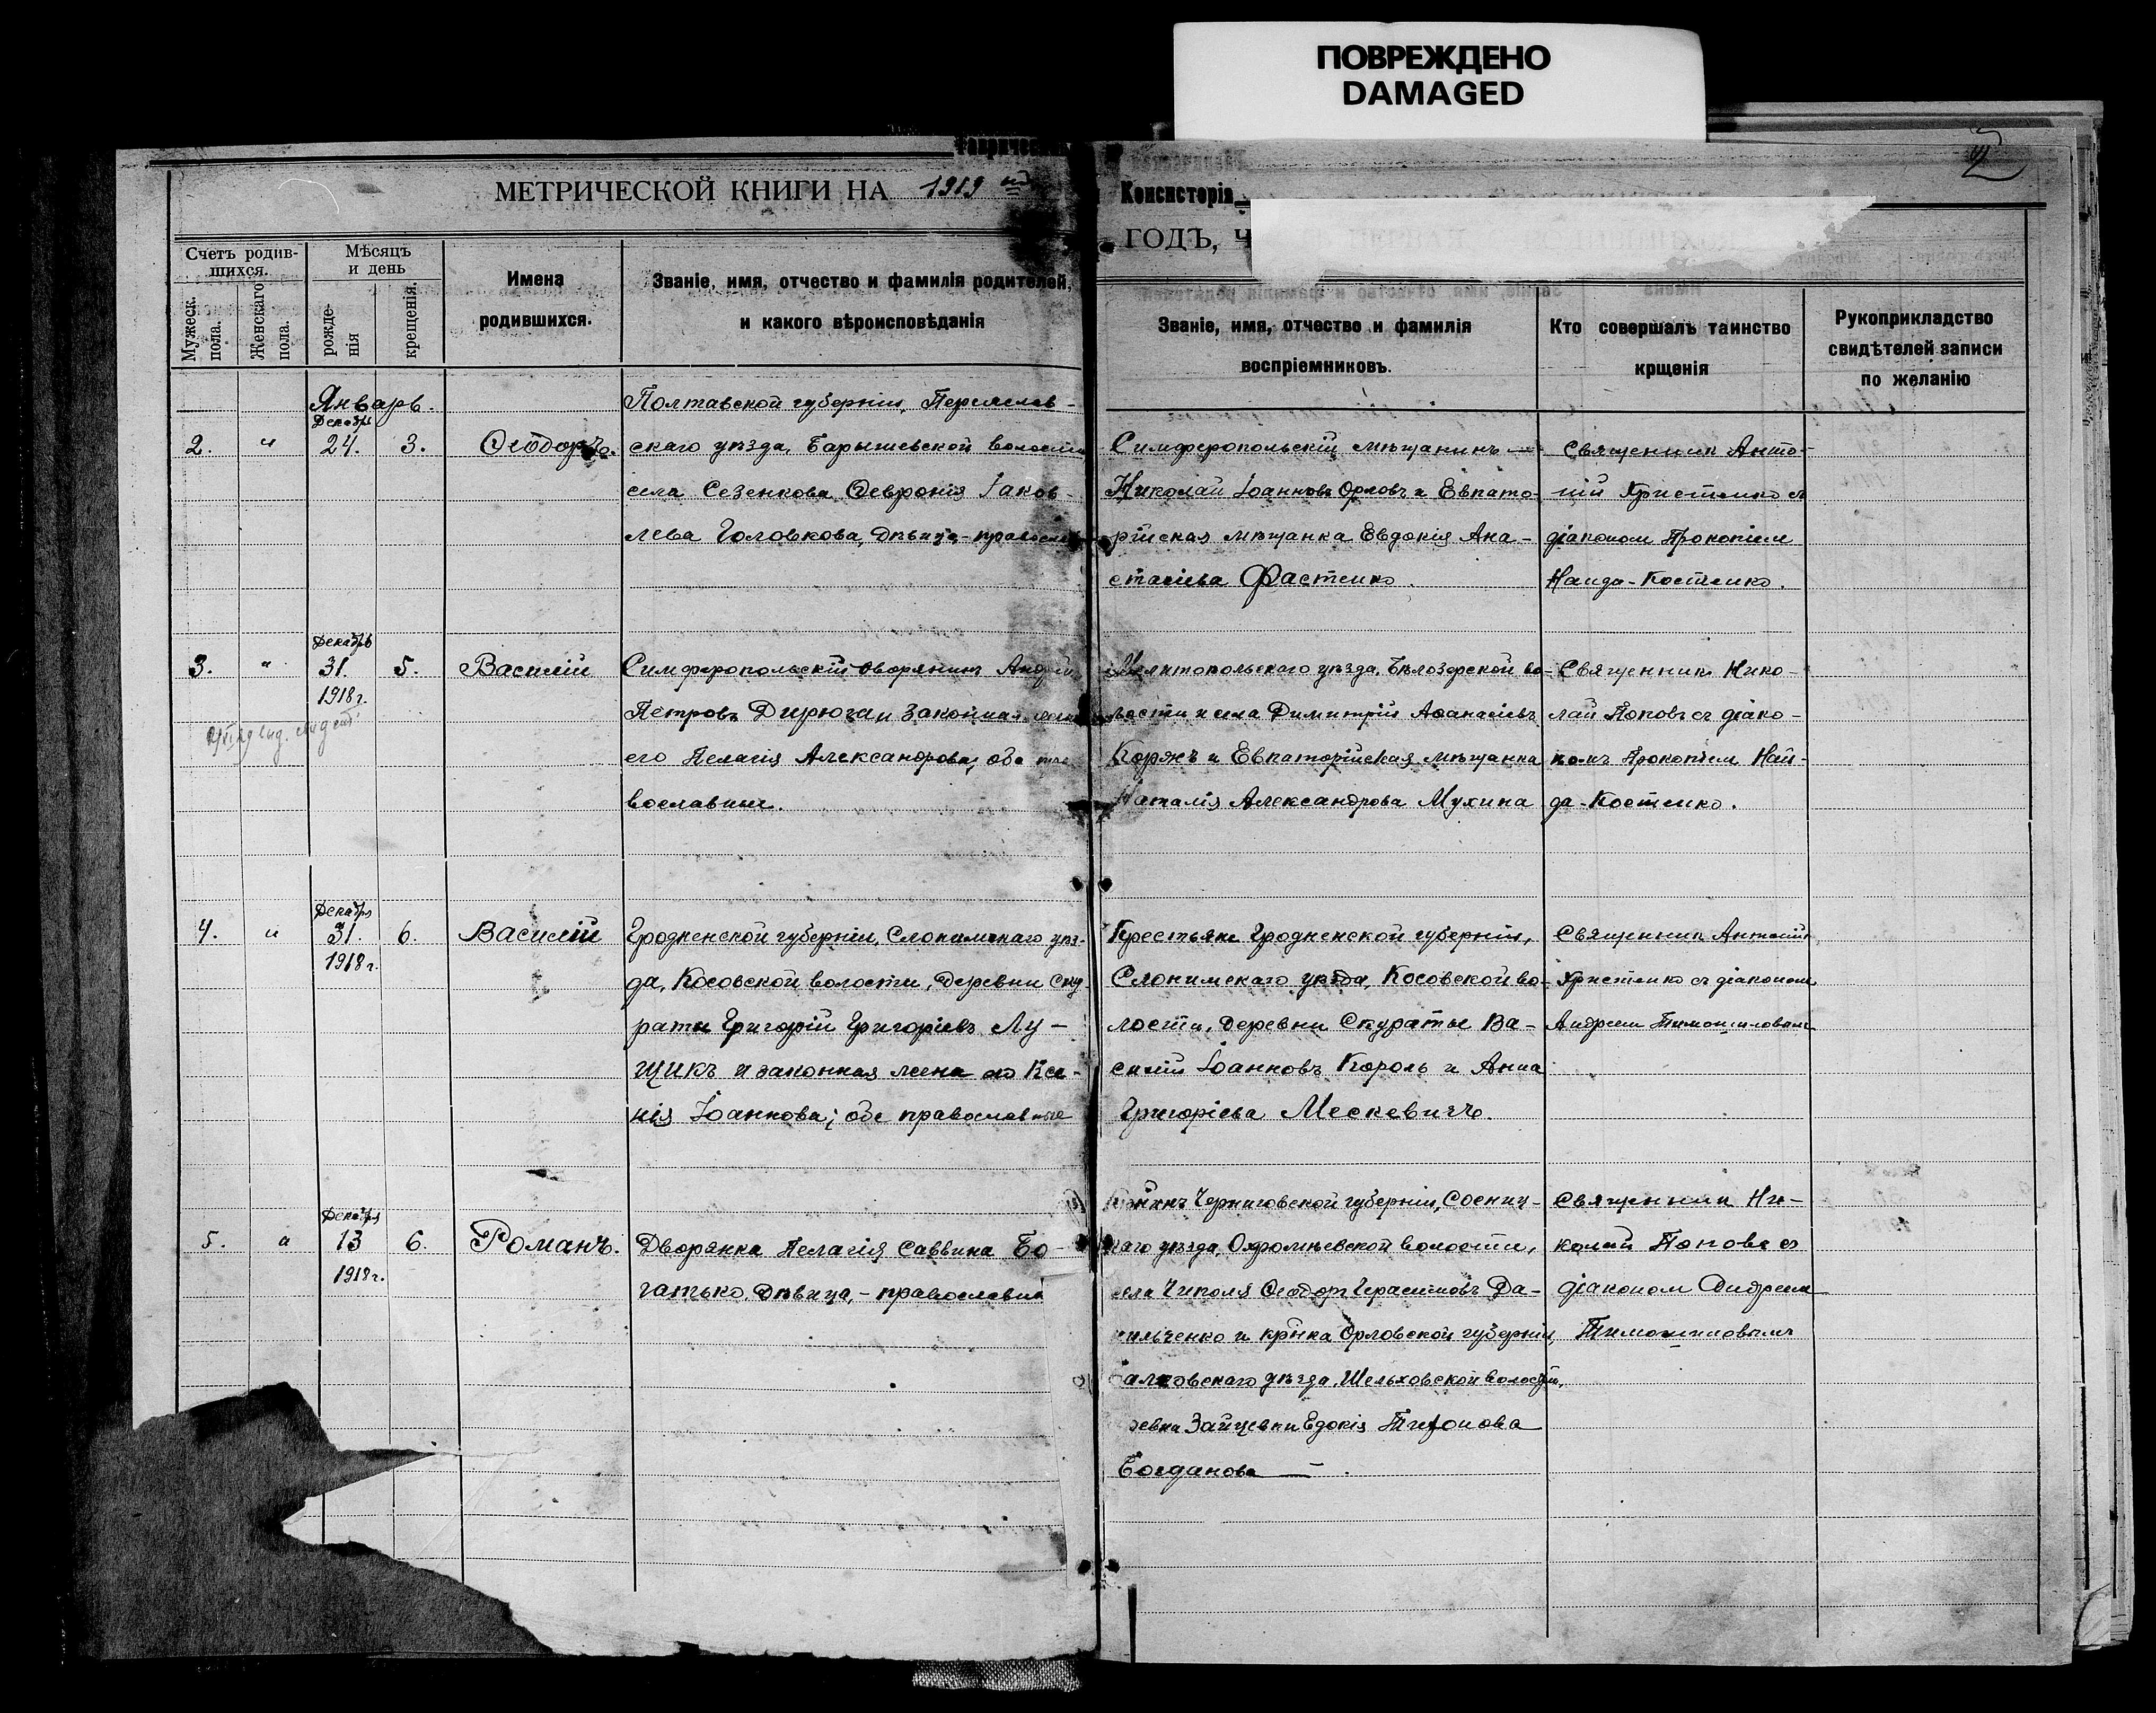 ПОВРЕЖДЕНО
DAMAGED
МЕТРИЧЕСКОЙ КНИГИ НА 1919
Консисторія
ГОДЪ,
Счетъ родив-
шихся.
Мужеск. пола.
Женскаго пола.
Мѣсяцъ
и день
рожде-
нія
крещенія.
Имена
родившихся.
Званіе, имя, отчество и фамилія родителей,
и какого вѣроисповѣданія
Званіе, имя, отчество и фамилія
воспріемниковъ.
Кто совершалъ таинство
крщенія
Рукоприкладство
свидѣтелей записи
по желанію
Январь.
Декабрь
2. " 24. 3. Ѳеодоръ.
Полтавской губерніи, Переяслав-
скаго уѣзда, Барышевской волости
села Сезенкова Ѳевронія Іаков-
лева Головкова, дѣвица,-
Симферопольскій мѣщанинъ —
Николай Іоанновъ Орловъ и Евпато-
рійская мѣщанка Евдокія Ана-
стасіева Фастенко.
Священник Анто-
ній Христенко съ
діаконом Прокопіем
Найда-Костенко.
Декабрь
3. " 31. 5. Василій
1918 г.
Симферопольскій дворянин Андрей
Петровъ Дирюга и законная
его Пелагія Александрова, оба
вославные.
Мелитопольскаго уѣзда, Бѣлозерской во-
лости и села Димитрій Аѳанасіевъ
Коржъ и Евпаторійская мѣщанка
Наталія Александрова Мухина
Священник Нико-
лай Поповъ съ діако-
номъ Прокопіем Най-
да-Костенко.
Декабря
4. " 31. 6. Василій
1918 г.
Гродненской губерніи, Слонимскаго уѣз-
да, Косовской волости, деревни Ску-
раты Григорій Григоріевъ Лу-
щикъ и законная жена его Ксе-
нія Іоаннова; оба православные
Крестьяне Гродненской губерніи,
Слонимскаго уѣзда, Косовской во-
лости, деревни Скураты Ва-
силій Іоанновъ Король и Анна
Григоріева Мескевичъ.
Священник Антоній
Христенко съ діаконом
Андреем Тимошиловым
Декабря
5. " 13 6. Романъ.
1918 г.
Дворянка Пелагія Саввина Бо-
гатько, дѣвица, - православна
Черниговской губерніи, Сосниц-
каго уѣзда, волости,
села Ѳеодоръ Герасимовъ Да-
нильченко и кр-нка Орловской губерніи,
уѣзда, Шельховской волости,
Зайцевки Едокія
Богданова —
Священник Ни-
колай Поповъ съ
діаконом Андреем